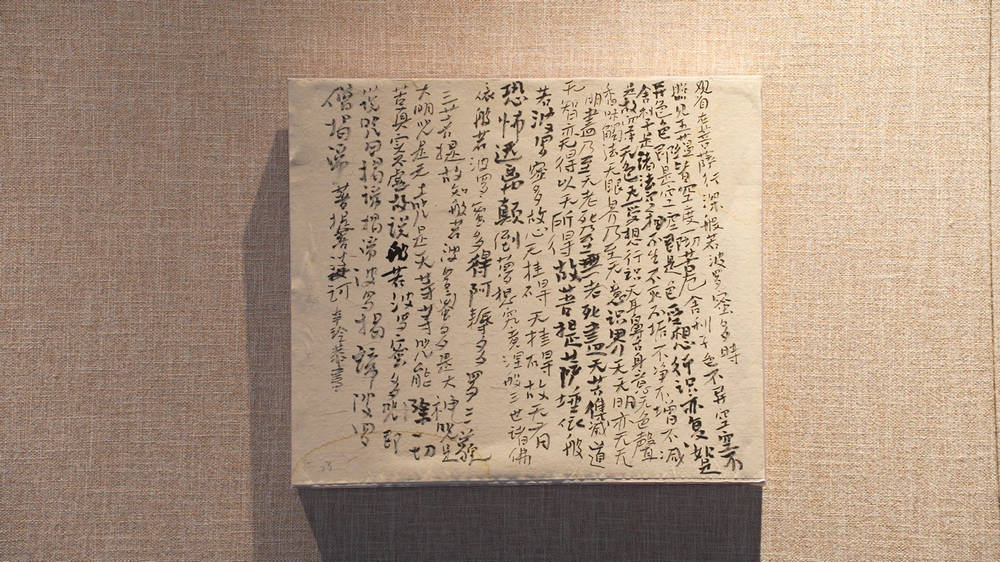 观自在菩萨行深般若波罗蜜多時
照见五蕴皆空度一切苦厄舍利子色不异空空不
异色色即是空空即是色受想行识亦复如是
舍利子是诸法空相不生不灭不垢不净不增不减
是故空中无色无受想行识无耳鼻舌身意无色聲
香味觸法无眼界乃至无意识界无无明亦无无
明盡乃至无老死乃至無老死盡无苦集滅道
无智亦无得以无所得故菩提萨埵依般
若波罗蜜多故心无挂碍无挂碍故无有
恐怖远离颠倒夢想究竟涅槃三世诸佛
依般若波罗蜜多得阿耨多罗三藐
三菩提故知般若波罗蜜多是大神咒是
大明咒是无上咒是无等等咒能除一切
苦真实不虚故说般若波罗蜜多咒即
说咒曰揭谛揭帝波罗揭諦波罗
僧揭諦菩提薩婆訶恭書